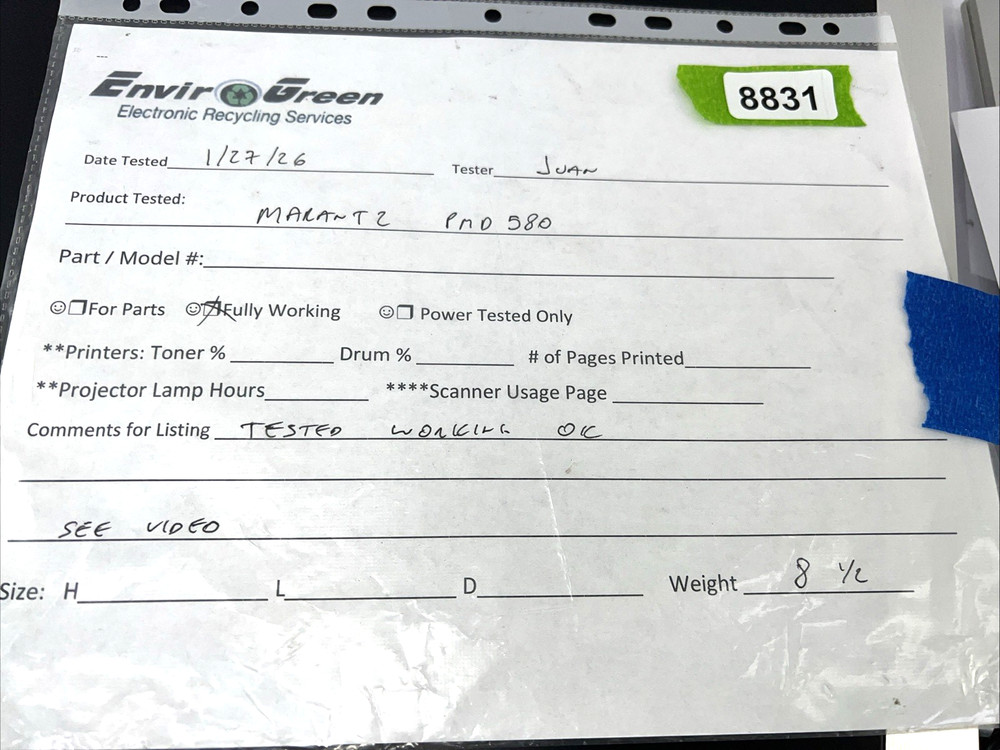 EnviroGreen
Electronic Recycling Services
8831
Date Tested 1/27/26 Tester JUAN
Product Tested:
MARANTZ PMD 580
Part / Model #:
For Parts Fully Working Power Tested Only
**Printers: Toner % Drum % # of Pages Printed
**Projector Lamp Hours ****Scanner Usage Page
Comments for Listing TESTED WORKING OK
SEE VIDEO
Size: H L D Weight 8 1/2